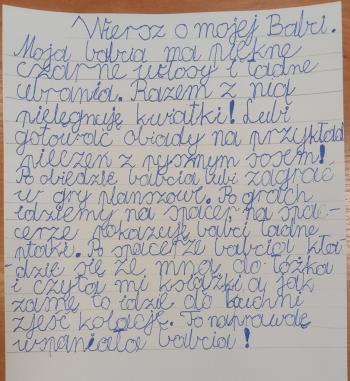 Wiersz o mojej Babci.
Moja babcia ma piękne
czarne włosy i ładne
ubrania. Razem z nią
pielęgnuję kwiatki! Lubi
gotować obiady na przykład
pieczeń z pysznym sosem!
Po obiedzie babcia lubi zagrać
w gry planszowe. Po grach
idziemy na spacer, na spa-
cerze pokazuję babci ładne
ptaki. Po spacerze babcia kła-
-dzie się ze mną do łóżka
i czyta mi książki a jak
zasnę to idzie do kuchni
zjeść kolację. To naprawdę
wspaniała babcia!